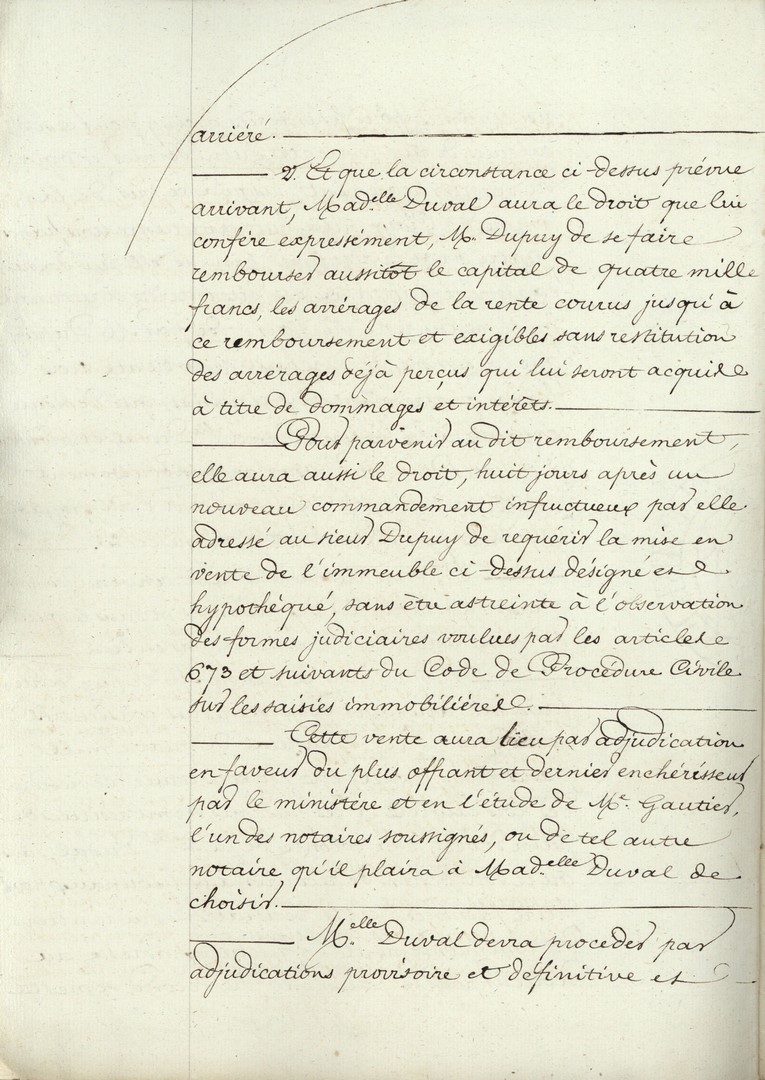 arriéré.
2°. Et que la circonstance ci-dessus prévue
arrivant, Mad.elle Duval aura le droit que lui
confère expressément, M. Dupuy de se faire
rembourser aussitôt le capital de quatre mille
francs, les arrérages de la rente courus jusqu'à
ce remboursement et exigibles sans restitution
des arrérages déjà perçus qui lui seront acquis
à titre de dommages et intérêts.
Pour parvenir audit remboursement,
elle aura aussi le droit, huit jours après un
nouveau commandement infructueux par elle
adressé au sieur Dupuy de requérir la mise en
vente de l'immeuble ci-dessus désigné et
hypothéqué, sans être astreinte à l'observation
des formes judiciaires voulues par les articles
673 et suivants du Code de Procédure Civile
sur les saisies immobilières.
Cette vente aura lieu par adjudication
en faveur du plus offrant et dernier enchérisseur
par le ministère et en l'étude de Me. Gautier,
l'un des notaires soussignés, ou de tel autre
notaire qu'il plaira à Mad.elle Duval de
choisir.
M.elle Duval devra procéder par
adjudications provisoire et définitive et